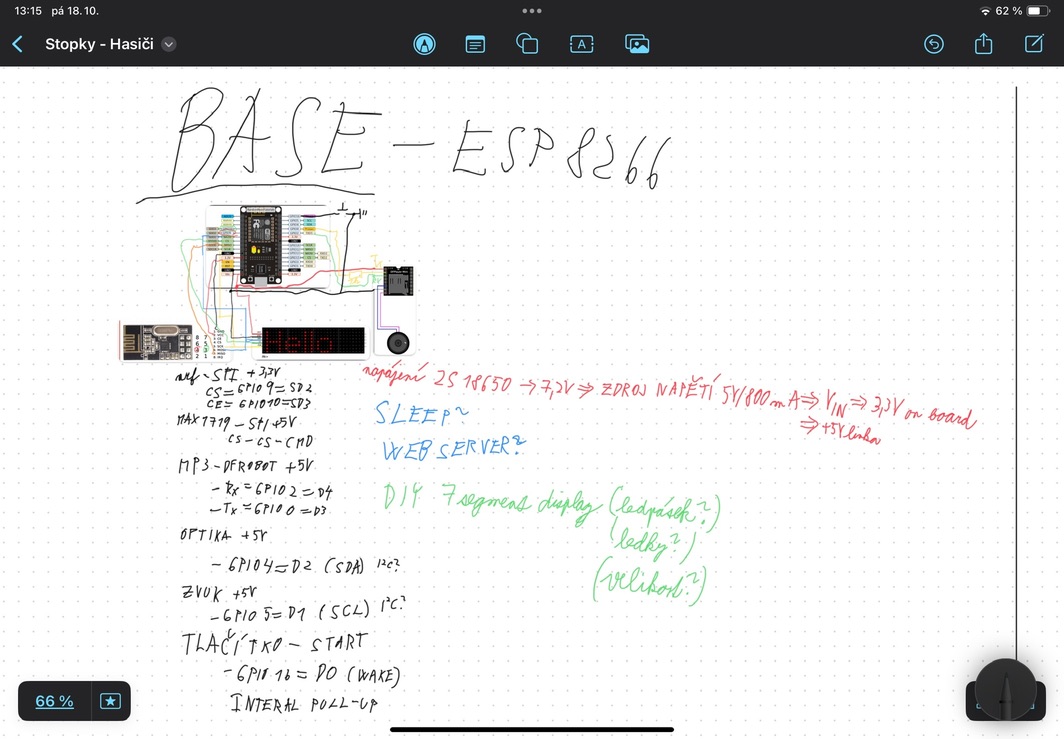 13:15 pá 18. 10.
62 %
Stopky - Hasiči
BASE - ESP8266
Hello
nrf - SPI + 3,3V
CS = GPIO 9 = SD2
CE = GPIO10 = SD3
MAX 1719 - SPI +5V
CS - CS - CMD
MP3 - DFROBOT +5V
- Rx = GPIO 2 = D4
- Tx = GPIO 0 = D3
OPTIKA +5V
- GPIO 4 = D2 (SDA) I²C?
ZVUK +5V
- GPIO 5 = D1 (SCL) I²C?
TLAČÍTKO - START
- GPIO 16 = D0 (WAKE)
INTERAL PULL-UP
napájení 2S 18650 → 7,2V ⇒ ZDROJ NAPĚTÍ 5V/800mA ⇒ VIN ⇒ 3,3V on board
⇒ +5V linka
SLEEP?
WEB SERVER?
DIY 7 segment display (ledpásek?)
(ledky?)
(velikost?)
66 %